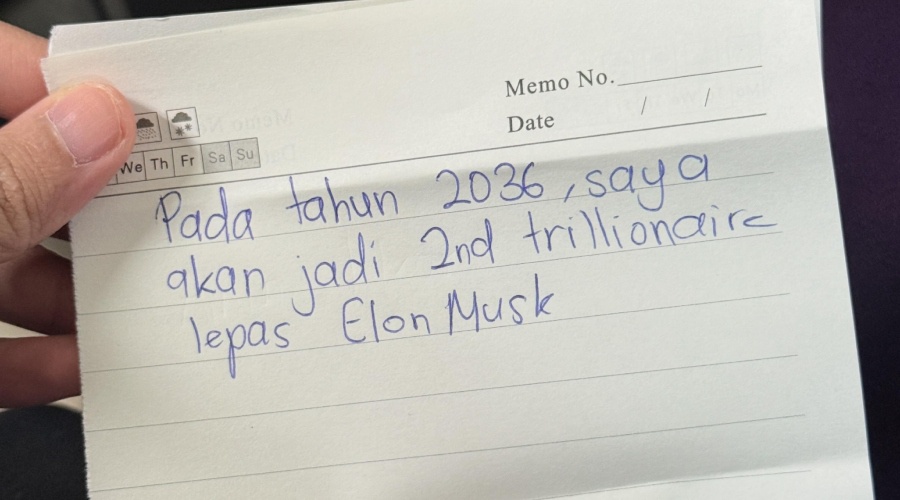 Memo No.
Date / /
We Th Fr Sa Su
Pada tahun 2036, saya
akan jadi 2nd trillionaire
lepas Elon Musk